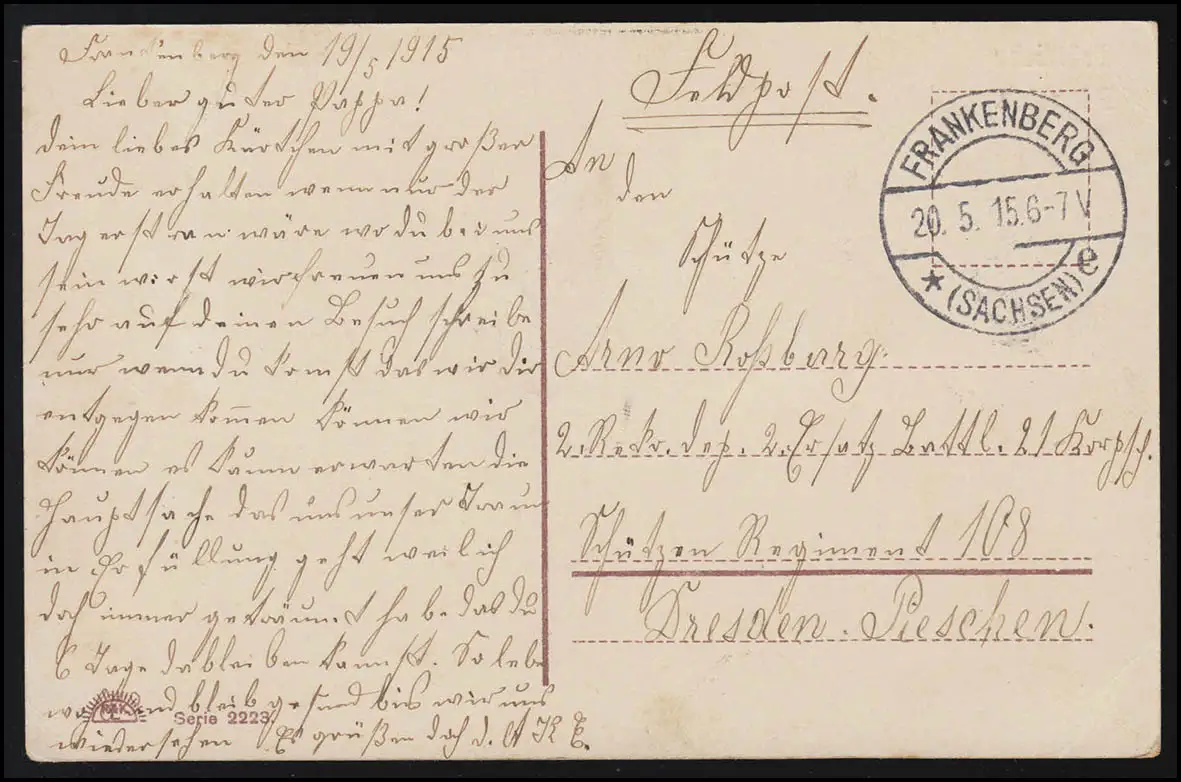 Frankenberg den 19/5 1915
Lieber guter Pappa!
dein liebes Kärtchen mit großer
Freude erhalten wenn nur der
Tag erst ran wäre wo du bei uns
sein wirst wir freuen uns zu
sehr auf deinen Besuch schreibe
nur wenn du komst das wir dir
entgegen kommen können wir
können es kaum erwarten die
Hauptsache das uns unser Traum
in Erfüllung geht weil ich
doch immer geträumt habe das du
6 Tage da bleiben kannst. So lebe
wohl und bleib gesund bis wir uns
wiedersehen Es grüßen dich d. K E.
Serie 2223.
Feldpost.
An
den
Schütze
Arno Roßberg.
2. Rekr. dep. 2. Ersatz Battl. 21 Korpsch.
Schützen Regiment 108
Dresden. Pieschen.
FRANKENBERG
20. 5. 15. 6-7 V
* (SACHSEN) e